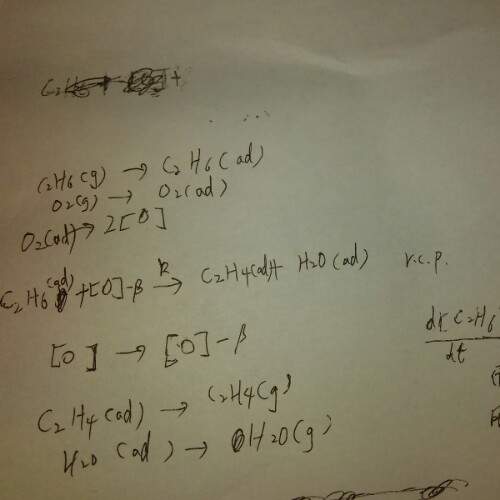 C2H6(g) → C2H6(ad)
O2(g) → O2(ad)
O2(ad) → 2[O]
C2H6(ad) + [O]-β →k C2H4(ad) + H2O(ad) r.c.p.
d[C2H6
dt
[O] → [O]-β
C2H4(ad) → C2H4(g)
H2O(ad) → H2O(g)